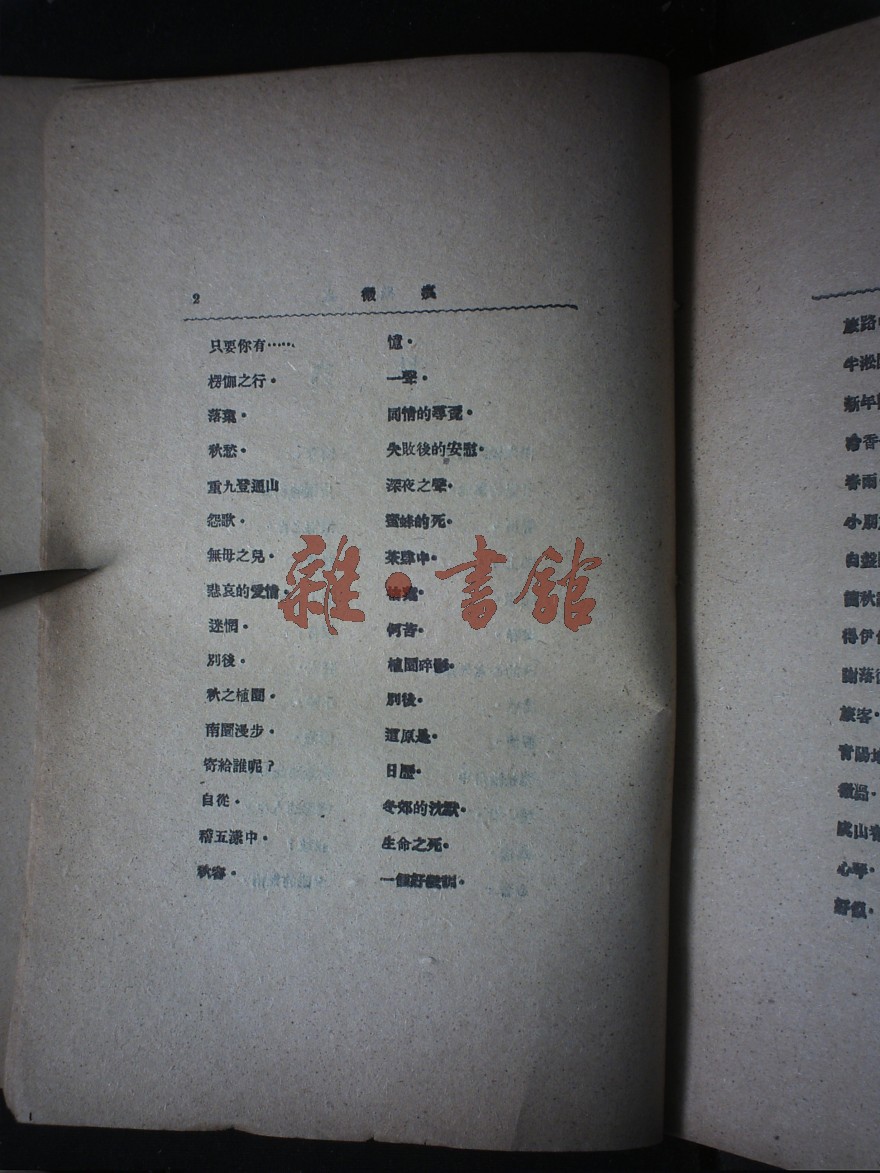 2
痕
只要你有……
楞伽之行。
落葉。
秋愁。
重九登通山
怨歌。
無母之兒。
悲哀的愛情。
迷惘。
別後。
秋之植園。
南園漫步。
寄給誰呢？
自從。
稽五漾中。
秋容。
憶。
一聲。
同情的尋覓。
失敗後的安慰。
深夜之聲。
蜜蜂的死。
茶肆中。
何苦。
植園碎影。
別後。
還原是。
日歷。
冬郊的沈默。
生命之死。
一個好教訓。
雜·書館
旅路
牛淞
新年
香
春雨。
小朋
自
秋
得伊
落
旅客。
青陽地
山
心